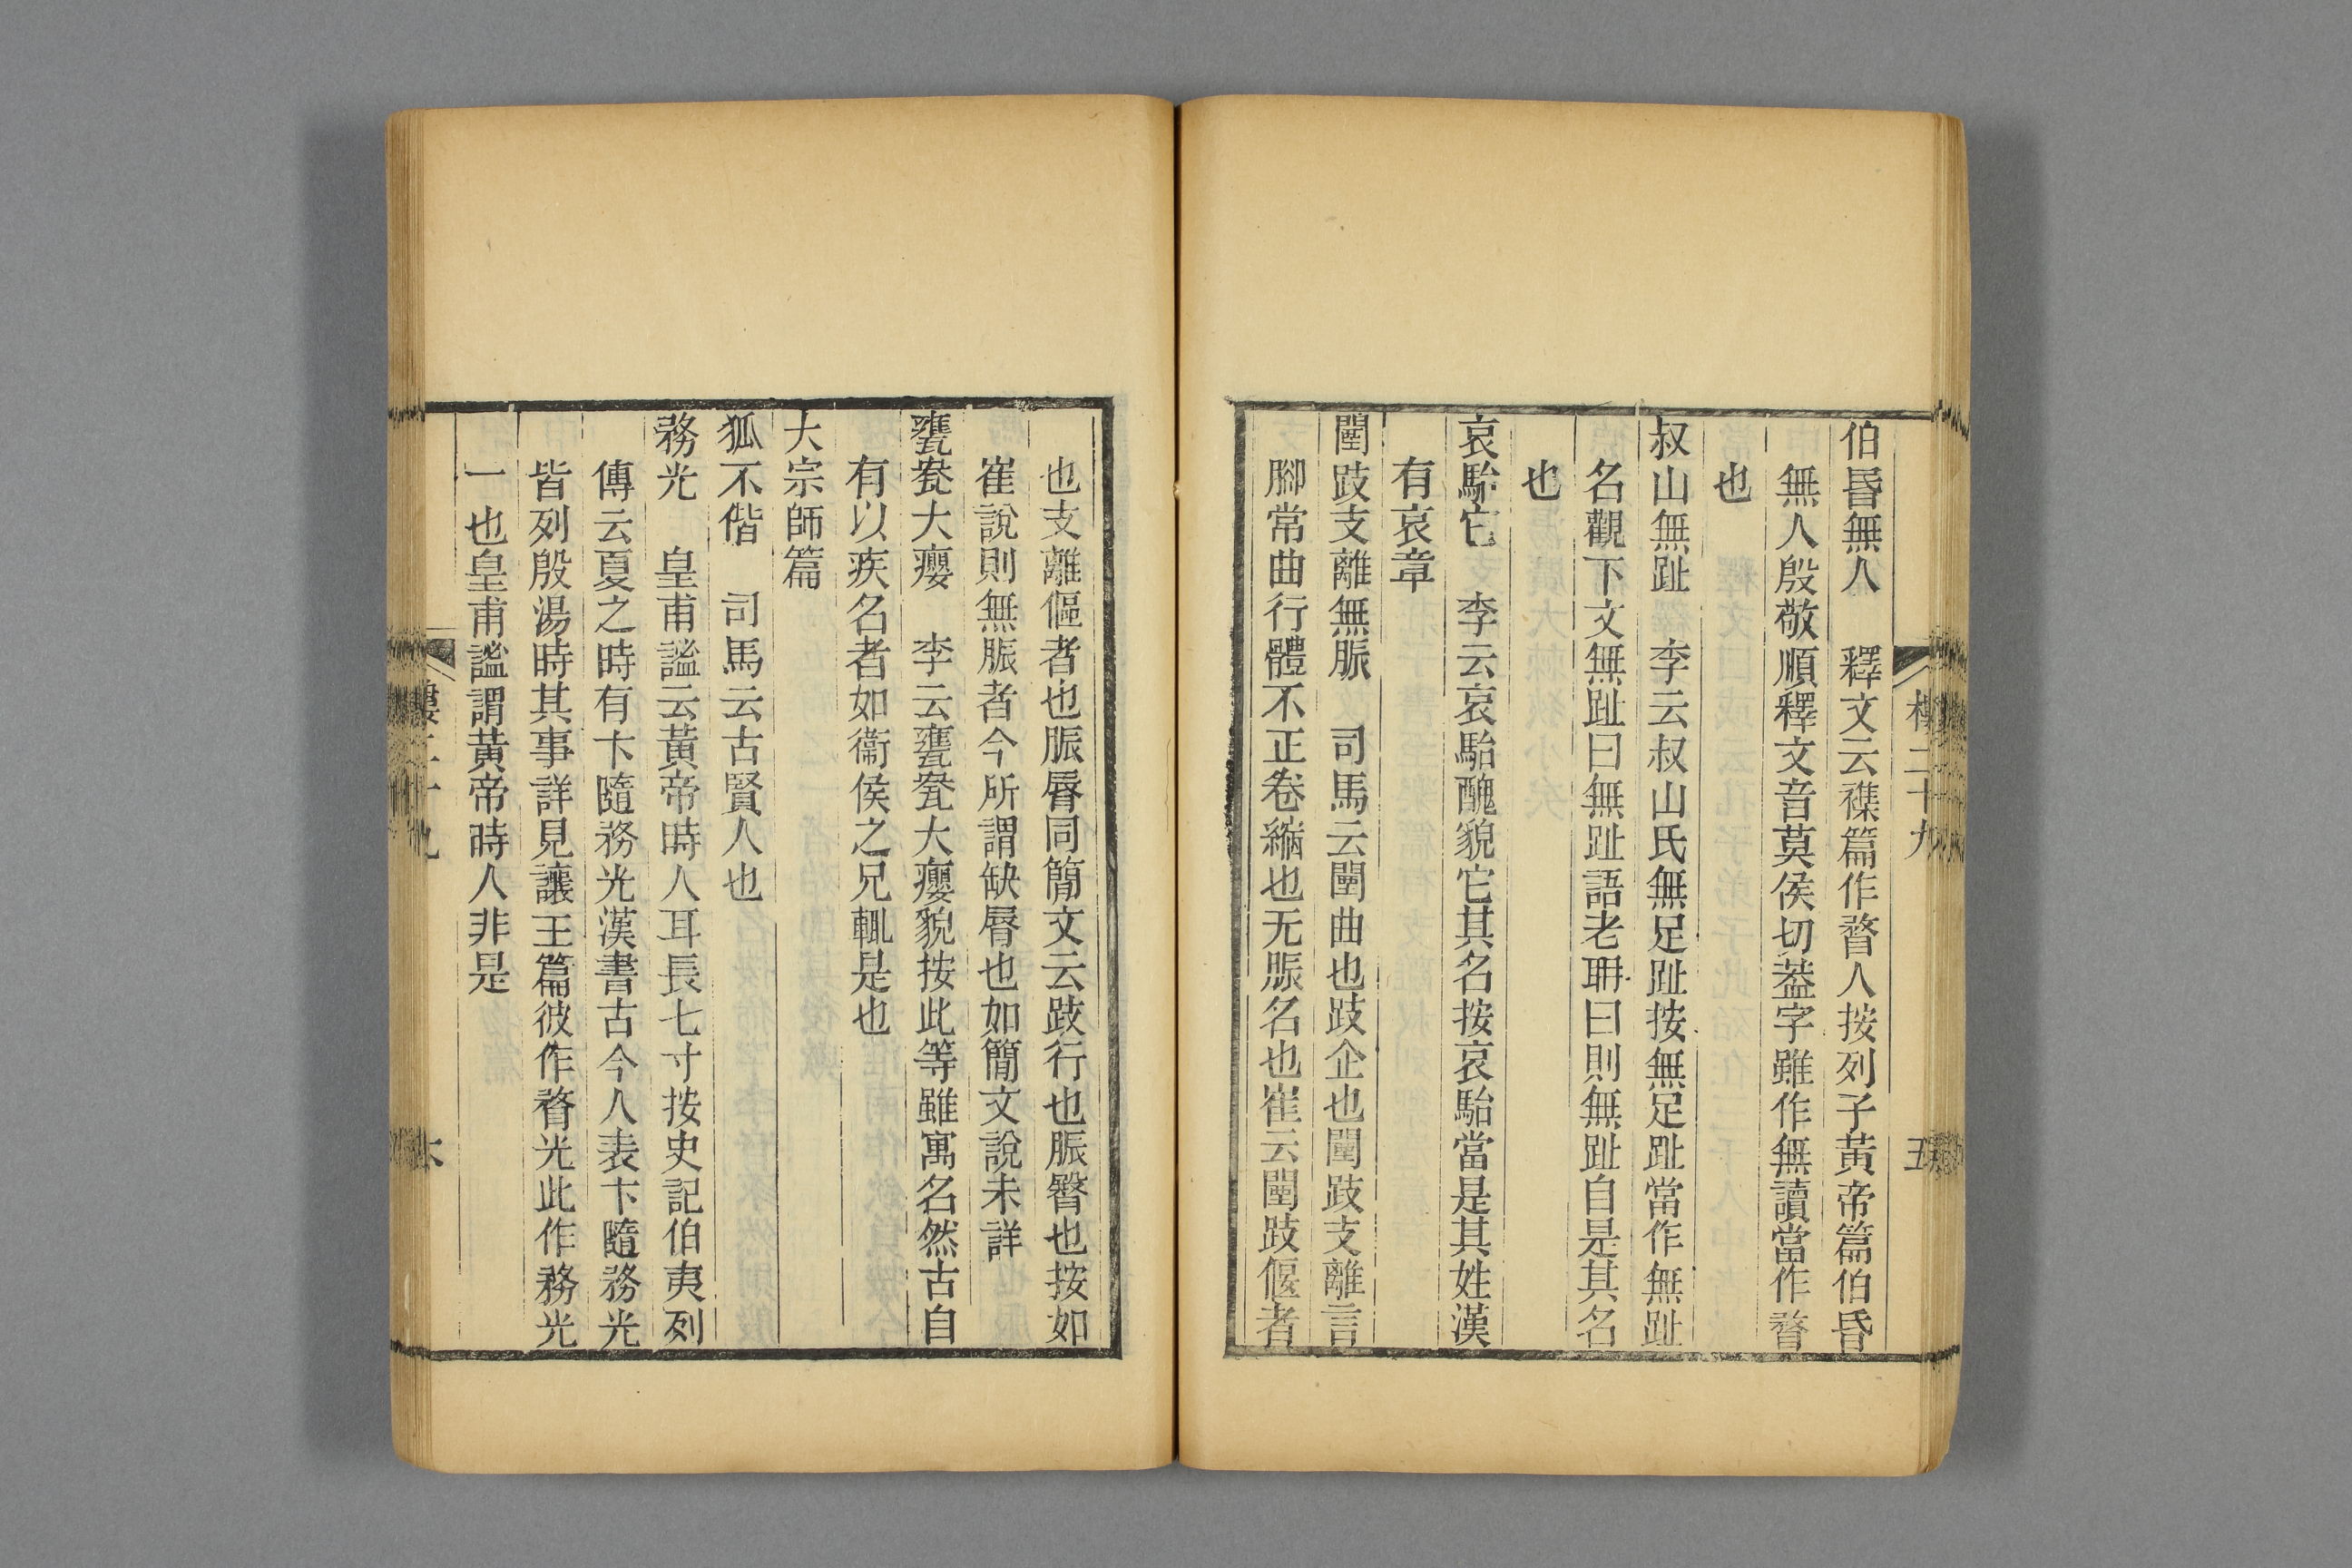 伯昬無人　釋文云襍篇作瞀人按列子黃帝篇伯昏
無人殷敬順釋文音莫侯切葢字雖作無讀當作瞀
也
叔山無趾　李云叔山氏無足趾按無足趾當作無趾
名觀下文無趾曰無趾語老耼曰則無趾自是其名
也
哀駘它　李云哀駘醜貌它其名按哀駘當是其姓漢
有哀章
闉跂支離無脤　司馬云闉曲也跂企也闉跂支離言
腳常曲行體不正卷縮也无脤名也崔云闉跂偃者
也支離傴者也脤脣同簡文云跂行也脤臀也按如
崔說則無脤者今所謂缺脣也如簡文說未詳
甕㼜大癭　李云甕㼜大癭貌按此等雖寓名然古自
有以疾名者如衞侯之兄輒是也
大宗師篇
狐不偕　司馬云古賢人也
務光　皇甫謐云黃帝時人耳長七寸按史記伯夷列
傳云夏之時有卞隨務光漢書古今人表卞隨務光
皆列殷湯時其事詳見讓王篇彼作瞀光此作務光
一也皇甫謐謂黃帝時人非是
二十九
五
六